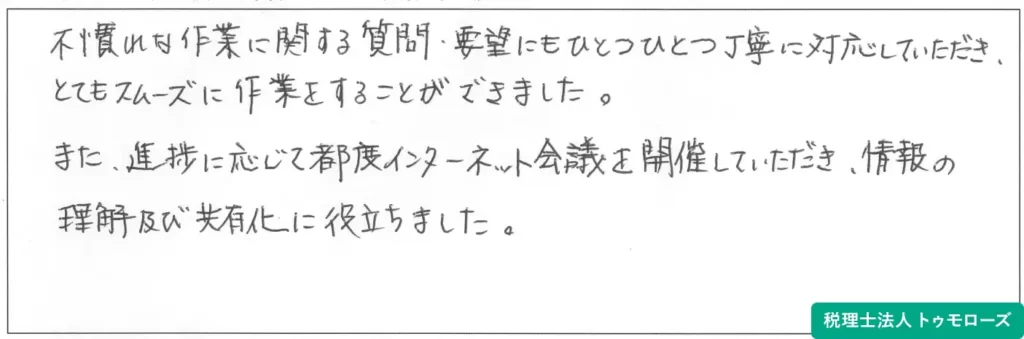 不慣れな作業に関する質問・要望にもひとつひとつ丁寧に対応していただき、
とてもスムーズに作業をすることができました。
また、進捗に応じて都度インターネット会議を開催していただき、情報の
理解及び共有化に役立ちました。
税理士法人トゥモローズ